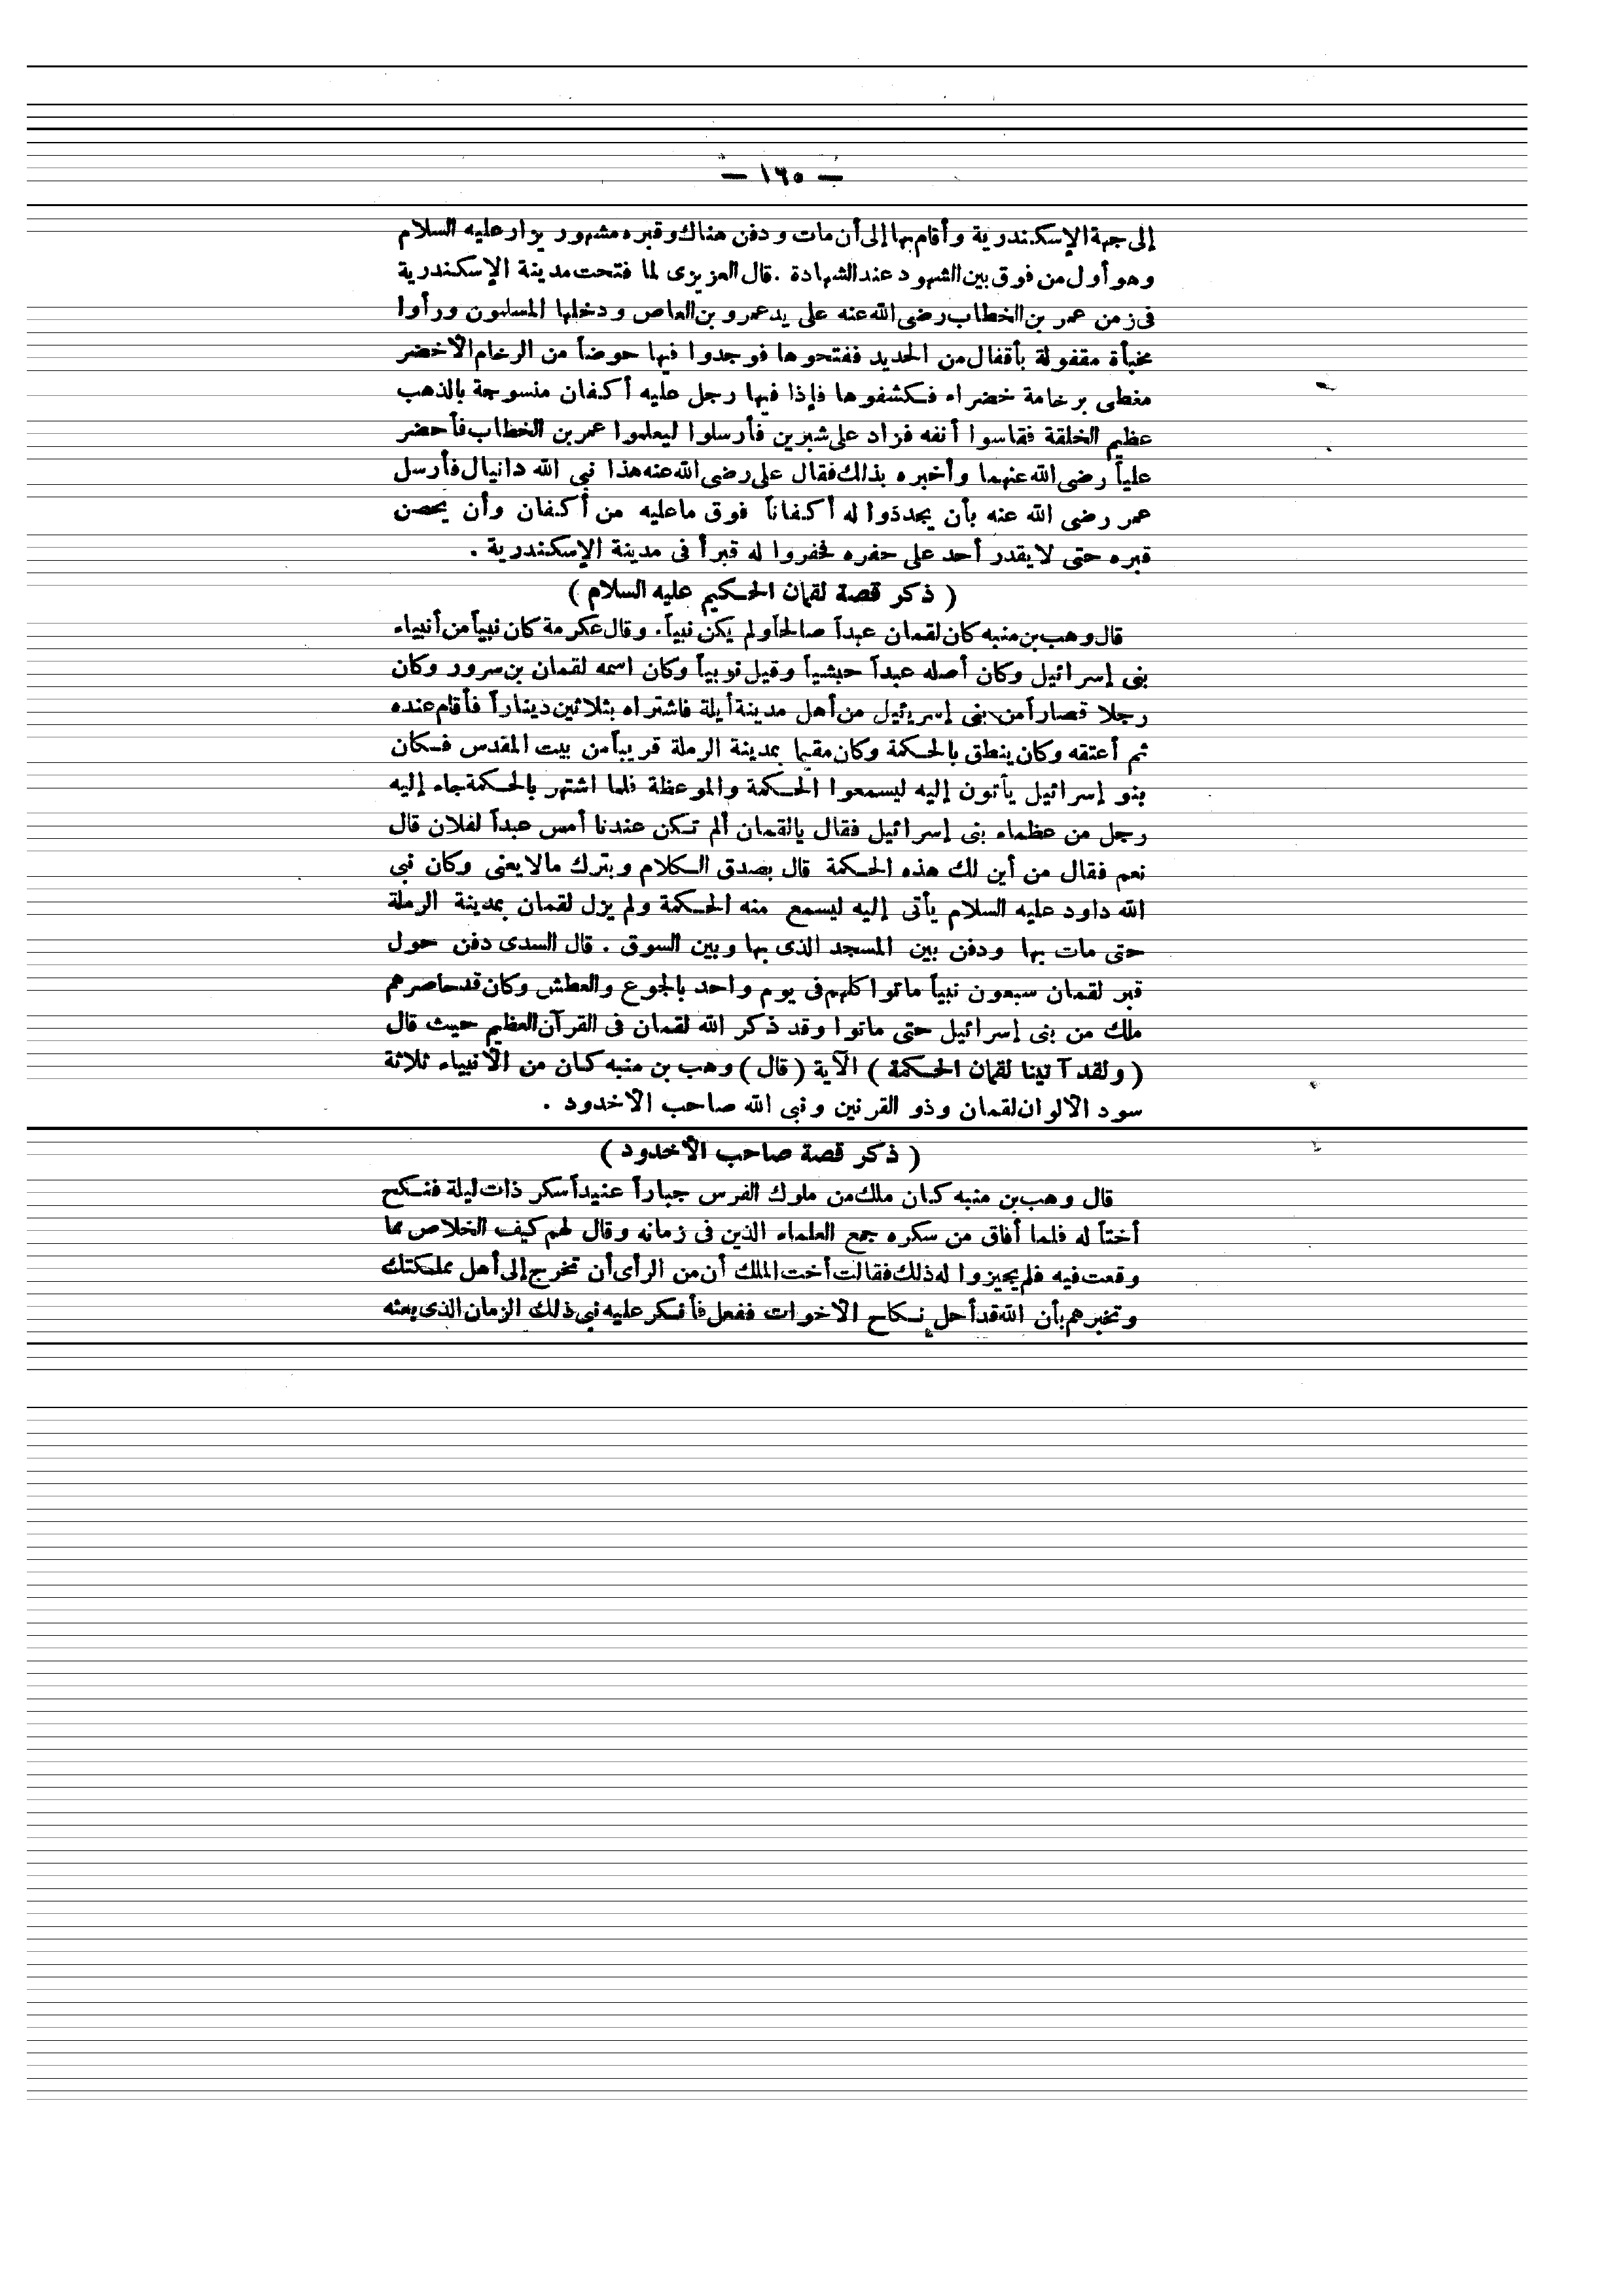 — ١٦٥ —
إلى جهة الإسكندرية وأقام بها إلى أن مات ودفن هناك وقبره مشهور يزار عليه السلام
وهو أول من فوق بين الشهود عند الشهادة . قال العزيزى لما فتحت مدينة الإسكندرية
فى زمن عمر بن الخطاب رضى الله عنه على يد عمرو بن العاص ودخلها المسلمون ورأوا
مخبأة مقفولة بأقفال من الحديد ففتحوها فوجدوا فيها حوضاً من الرخام الأخضر
مغطى برخامة خضراء فكشفوها فإذا فيها رجل عليه أكفان منسوجة بالذهب
عظيم الخلقة فقاسوا أنفه فزاد على شبرين فأرسلوا ليعلموا عمر بن الخطاب فأحضر
علياً رضى الله عنهما وأخبره بذلك فقال على رضى الله عنه هذا نبى الله دانيال فأرسل
عمر رضى الله عنه بأن يجددوا له أكفاناً فوق ما عليه من أكفان وأن يحصن
قبره حتى لا يقدر أحد على حفره فحفروا له قبراً فى مدينة الإسكندرية .
( ذكر قصة لقمان الحكيم عليه السلام )
قال وهب بن منبه كان لقمان عبداً صالحاً ولم يكن نبياً . وقال عكرمة كان نبياً من أنبياء
بنى إسرائيل وكان أصله عبداً حبشياً وقيل نوبياً وكان اسمه لقمان بن سرور وكان
رجلا قصاراً من بنى إسريئيل من أهل مدينة أيلة فاشتراه بثلاثين ديناراً فأقام عنده
ثم أعتقه وكان ينطق بالحكمة وكان مقيما بمدينة الرملة قريباً من بيت المقدس فكان
بنو إسرائيل يأتون إليه ليسمعوا الحكمة والموعظة فلما اشتهر بالحكمة جاء إليه
رجل من عظماء بنى إسرائيل فقال يالقمان ألم تكن عندنا أمس عبداً لفلان قال
نعم فقال من أين لك هذه الحكمة قال بصدق الكلام وبترك مالا يعنى وكان نبى
الله داود عليه السلام يأتى إليه ليسمع منه الحكمة ولم يزل لقمان بمدينة الرملة
حتى مات بها ودفن بين المسجد الذى بها وبين السوق . قال السدى دفن حول
قبر لقمان سبعون نبياً ماتوا كلهم فى يوم واحد بالجوع والعطش وكان قد حاصرهم
ملك من بنى إسرائيل حتى ماتوا وقد ذكر الله لقمان فى القرآن العظيم حيث قال
( ولقد آتينا لقمان الحكمة ) الآية ( قال ) وهب بن منبه كان من الأنبياء ثلاثة
سود الألوان لقمان وذو القرنين ونبى الله صاحب الأخدود .
( ذكر قصة صاحب الأخدود )
قال وهب بن منبه كان ملك من ملوك الفرس جباراً عنيداً سكر ذات ليلة فنكح
أختاً له فلما أفاق من سكره جمع العلماء الذين فى زمانه وقال لهم كيف الخلاص مما
وقعت فيه فلم يجيزوا له ذلك فقالت أخت الملك أن من الرأى أن تخرج إلى أهل مملكتك
وتخبرهم بأن الله قد أحل نكاح الأخوات ففعل فأنكر عليه نبى ذلك الزمان الذى بعثه